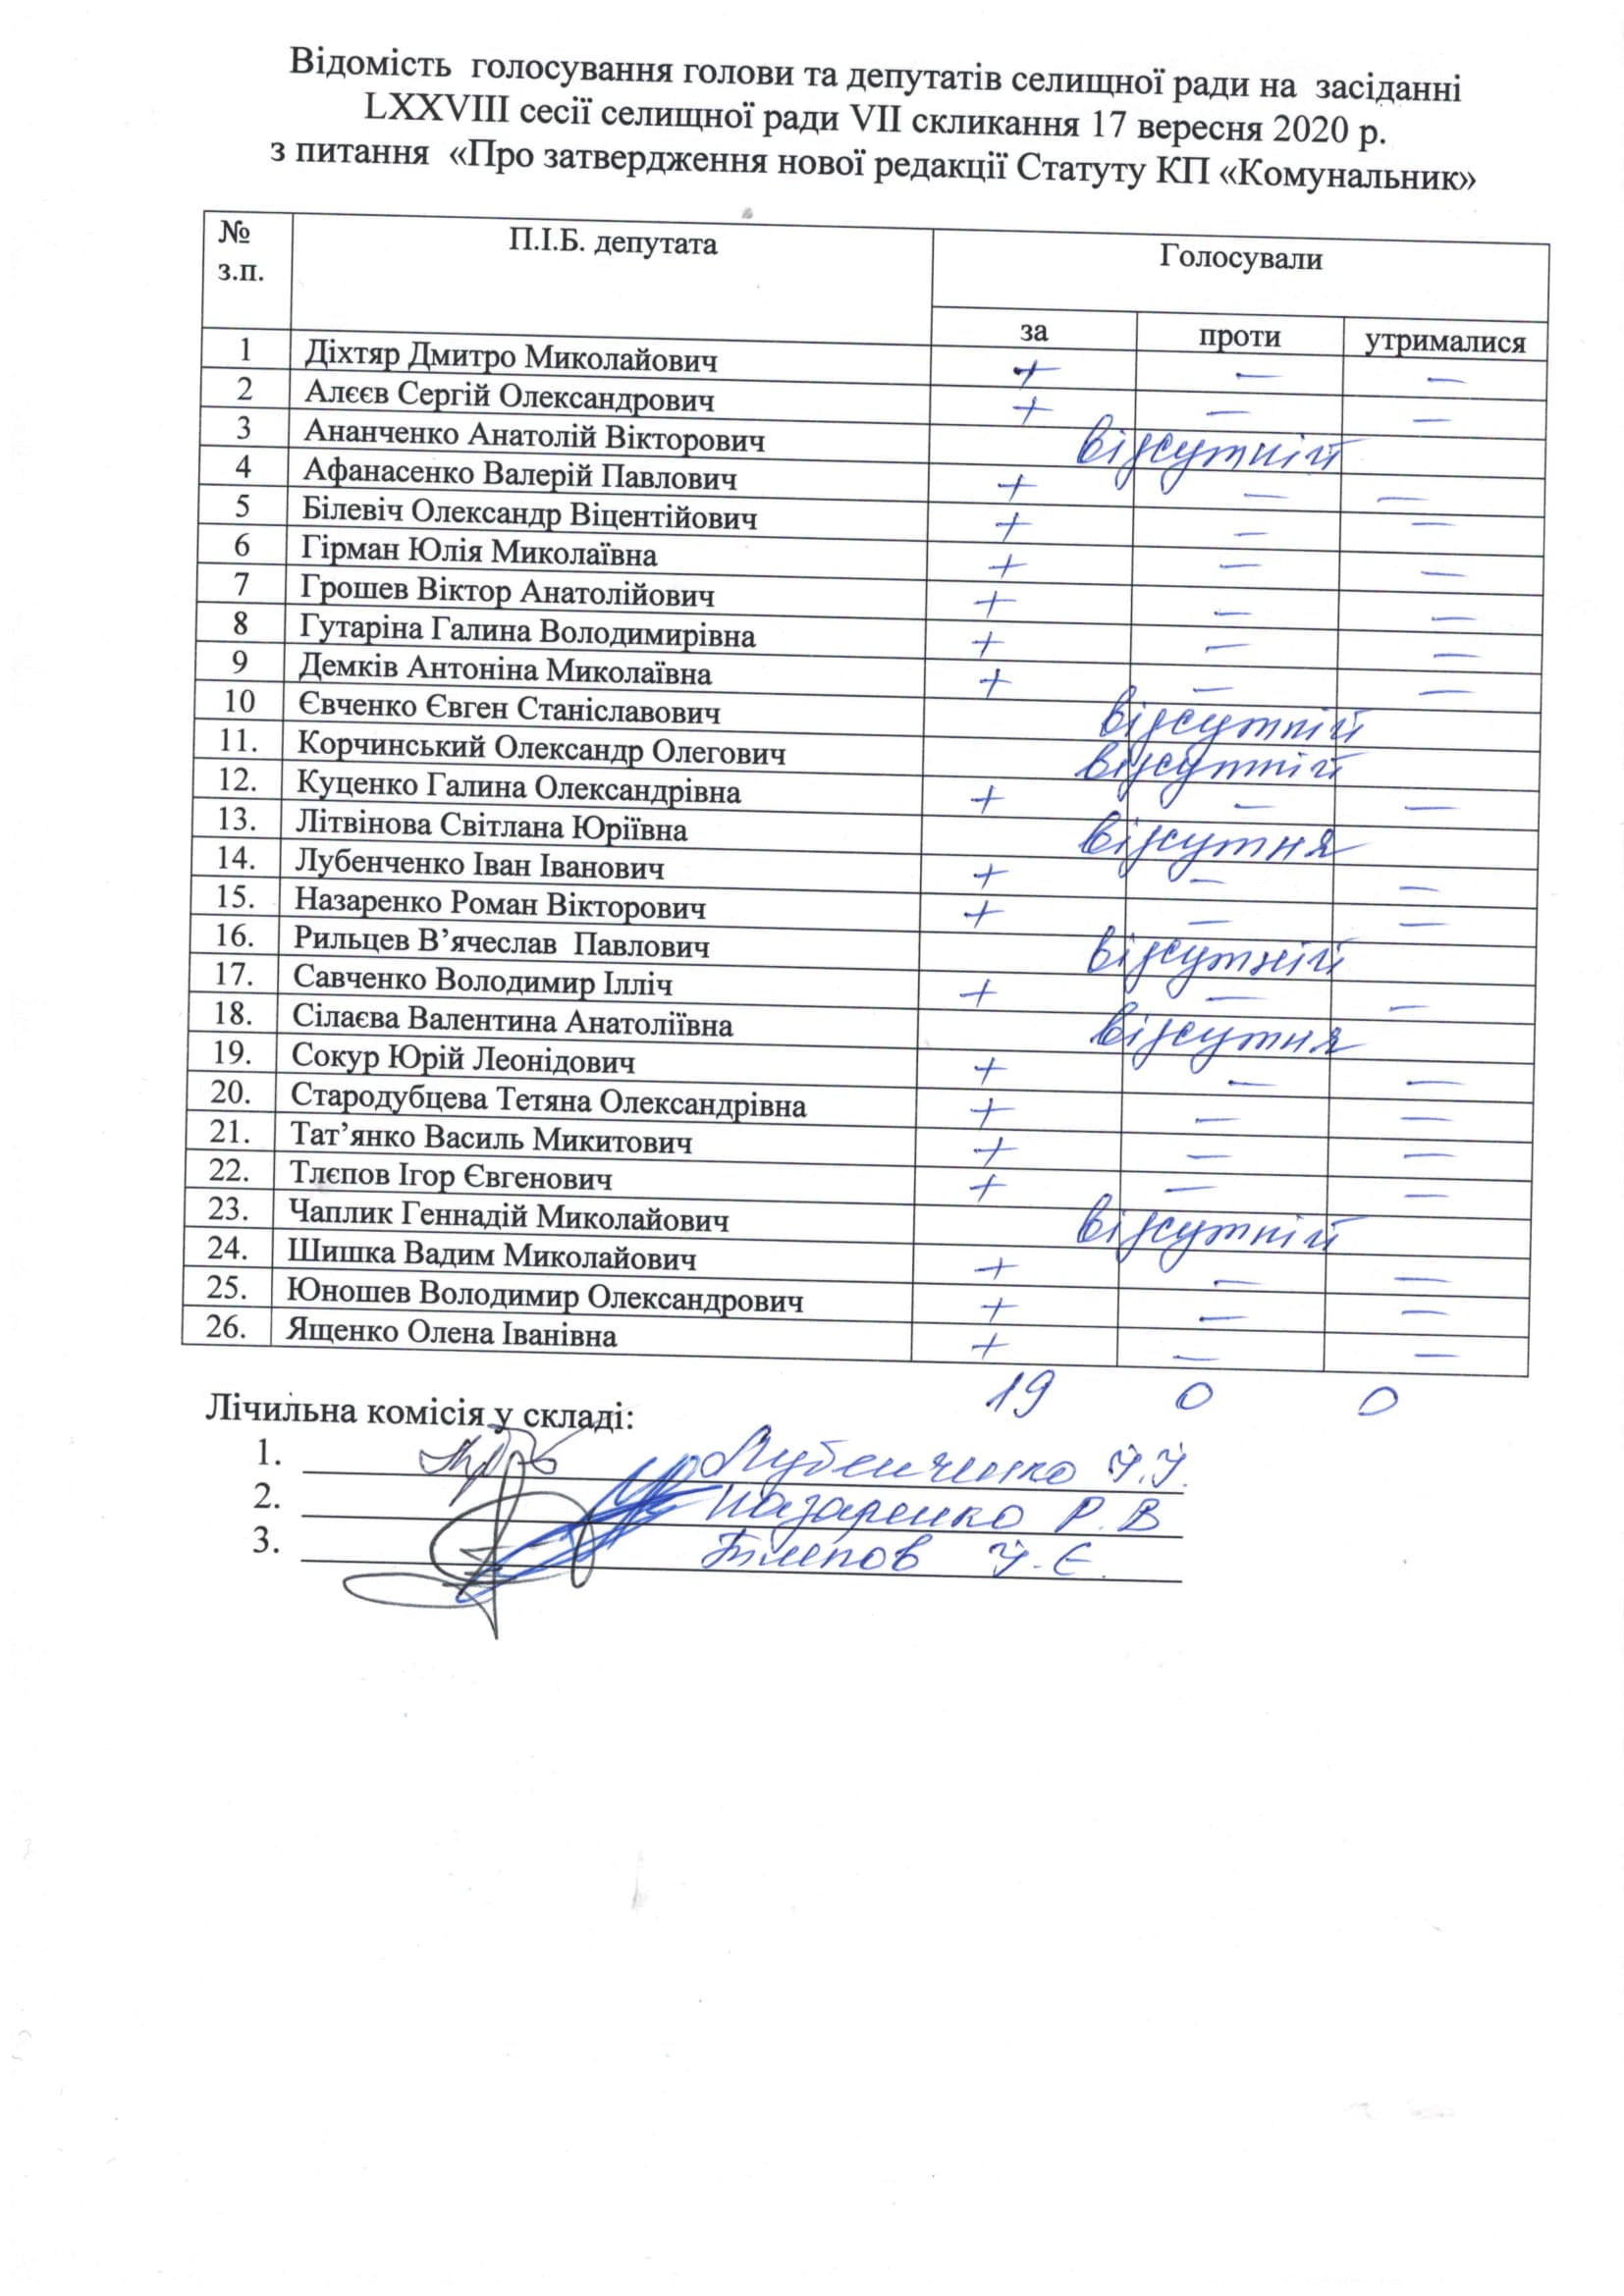 Відомість голосування голови та депутатів селищної ради на засіданні
LXXVIII сесії селищної ради VII скликання 17 вересня 2020 р.
з питання «Про затвердження нової редакції Статуту КП «Комунальник»
№ з.п. П.І.Б. депутата Голосували
за проти утрималися
1 Діхтяр Дмитро Миколайович + – –
2 Алєєв Сергій Олександрович + – –
3 Ананченко Анатолій Вікторович відсутній
4 Афанасенко Валерій Павлович + – –
5 Білевіч Олександр Віцентійович + – –
6 Гірман Юлія Миколаївна + – –
7 Грошев Віктор Анатолійович + – –
8 Гутаріна Галина Володимирівна + – –
9 Демків Антоніна Миколаївна + – –
10 Євченко Євген Станіславович відсутній
11. Корчинський Олександр Олегович відсутній
12. Куценко Галина Олександрівна + – –
13. Літвінова Світлана Юріївна відсутня
14. Лубенченко Іван Іванович + – –
15. Назаренко Роман Вікторович + – –
16. Рильцев В’ячеслав Павлович відсутній
17. Савченко Володимир Ілліч + – –
18. Сілаєва Валентина Анатоліївна відсутня
19. Сокур Юрій Леонідович + – –
20. Стародубцева Тетяна Олександрівна + – –
21. Тат’янко Василь Микитович + – –
22. Тлєпов Ігор Євгенович + – –
23. Чаплик Геннадій Миколайович відсутній
24. Шишка Вадим Миколайович + – –
25. Юношев Володимир Олександрович + – –
26. Ященко Олена Іванівна + – –
19 0 0
Лічильна комісія у складі:
1. Лубенченко І.І.
2. Назаренко Р.В
3. Тлепов І.Є.